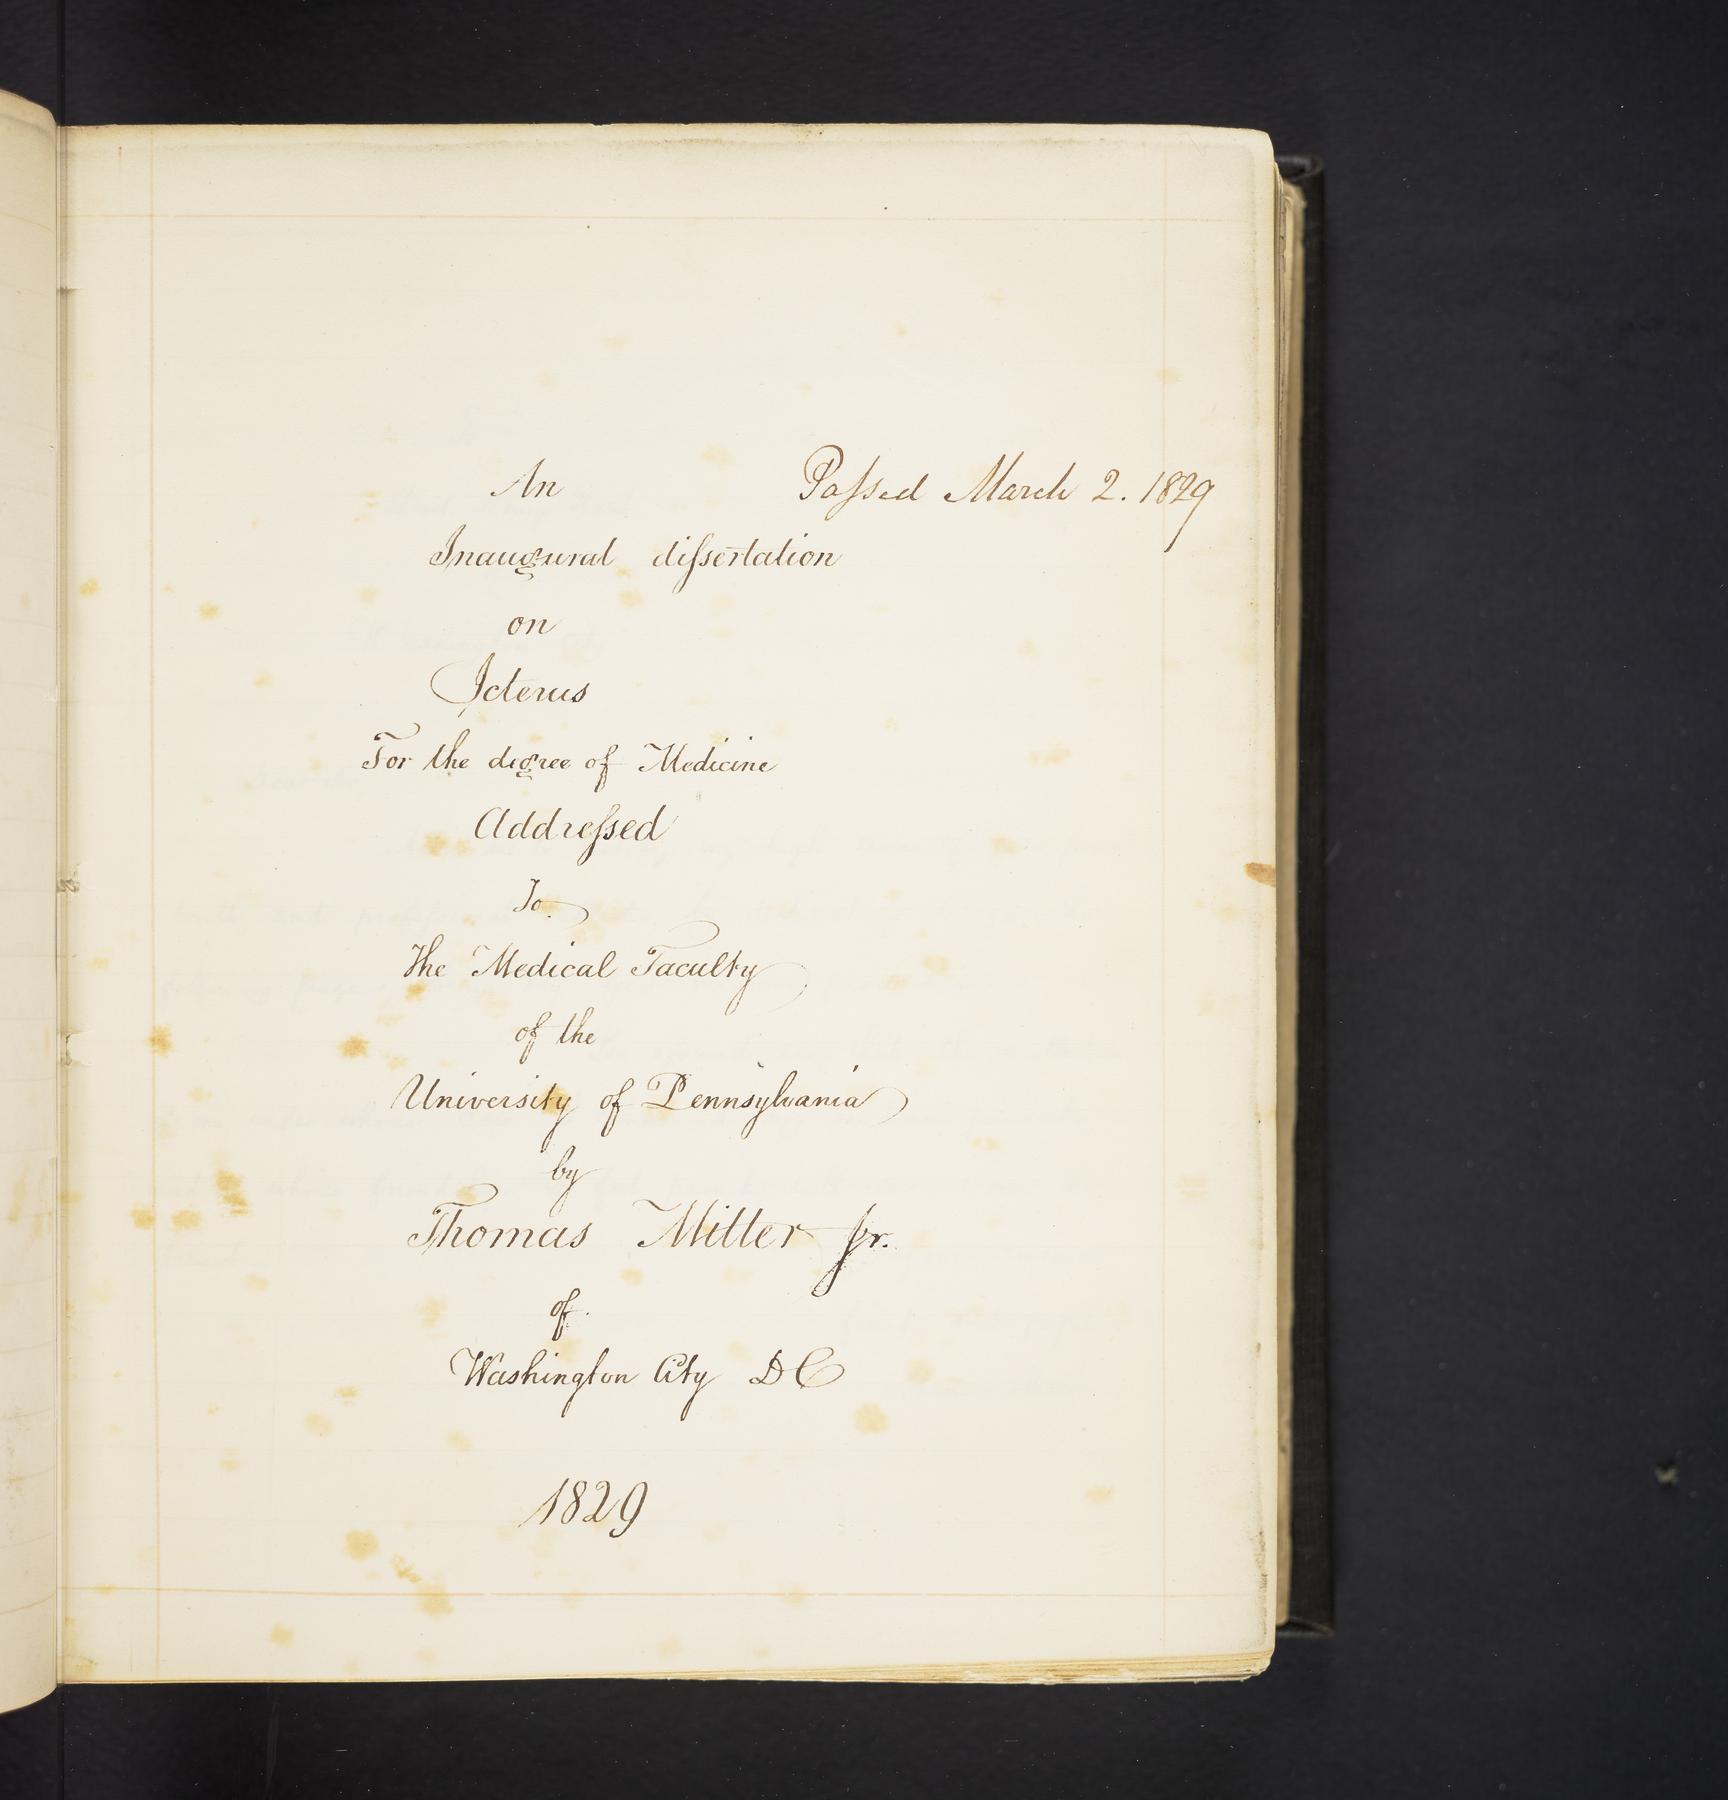 An
Passed March 2. 1829
Inaugural dissertation
on
Icterus
For the degree of Medicine
Addressed
To
The Medical Faculty
of the
University of Pennsylvania
by
Thomas Miller Jr.
of
Washington City DC
1829